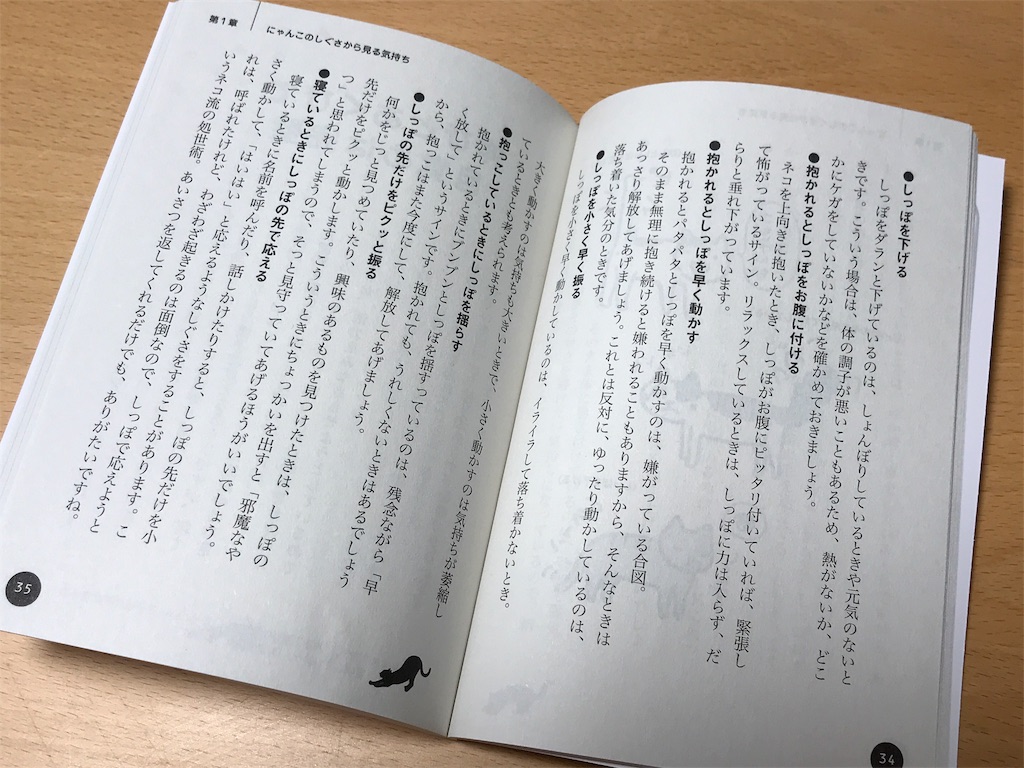 ●しっぽを下げる
しっぽをダランと下げているのは、しょんぼりしているときや元気のないと
きです。こういう場合は、体の調子が悪いこともあるため、熱がないか、どこ
かにケガをしていないかなどを確かめておきましょう。
●抱かれるとしっぽをお腹に付ける
ネコを上向きに抱いたとき、しっぽがお腹にピッタリ付いていれば、緊張し
て怖がっているサイン。リラックスしているときは、しっぽに力は入らず、だ
らりと垂れ下がっています。
●抱かれるとしっぽを早く動かす
抱かれるとパタパタとしっぽを早く動かすのは、嫌がっている合図。
そのまま無理に抱き続けると嫌われることもありますから、そんなときは
あっさり解放してあげましょう。これとは反対に、ゆったり動かしているのは、
落ち着いた気分のときです。
●しっぽを小さく早く振る
しっぽを小さく早く動かしているのは、イライラして落ち着かないとき。
34
第1章
にゃんこのしぐさから見る気持ち
大きく動かすのは気持ちも大きいときで、小さく動かすのは気持ちが萎縮し
ているときとも考えられます。
●抱っこしているときにしっぽを揺らす
抱かれているときにブンブンとしっぽを揺すっているのは、残念ながら「早
く放して」というサインです。抱かれても、うれしくないときはあるでしょう
から、抱っこはまた今度にして、解放してあげましょう。
●しっぽの先だけをピクッと振る
何かをじっと見つめていたり、興味のあるものを見つけたときは、しっぽの
先だけをピクッと動かします。こういうときにちょっかいを出すと「邪魔なや
つ」と思われてしまうので、そっと見守っていてあげるほうがいいでしょう。
●寝ているときにしっぽの先で応える
寝ているときに名前を呼んだり、話しかけたりすると、しっぽの先だけを小
さく動かして、「はいはい」と応えるようなしぐさをすることがあります。こ
れは、呼ばれたけれど、わざわざ起きるのは面倒なので、しっぽで応えようと
いうネコ流の処世術。あいさつを返してくれるだけでも、ありがたいですね。
35